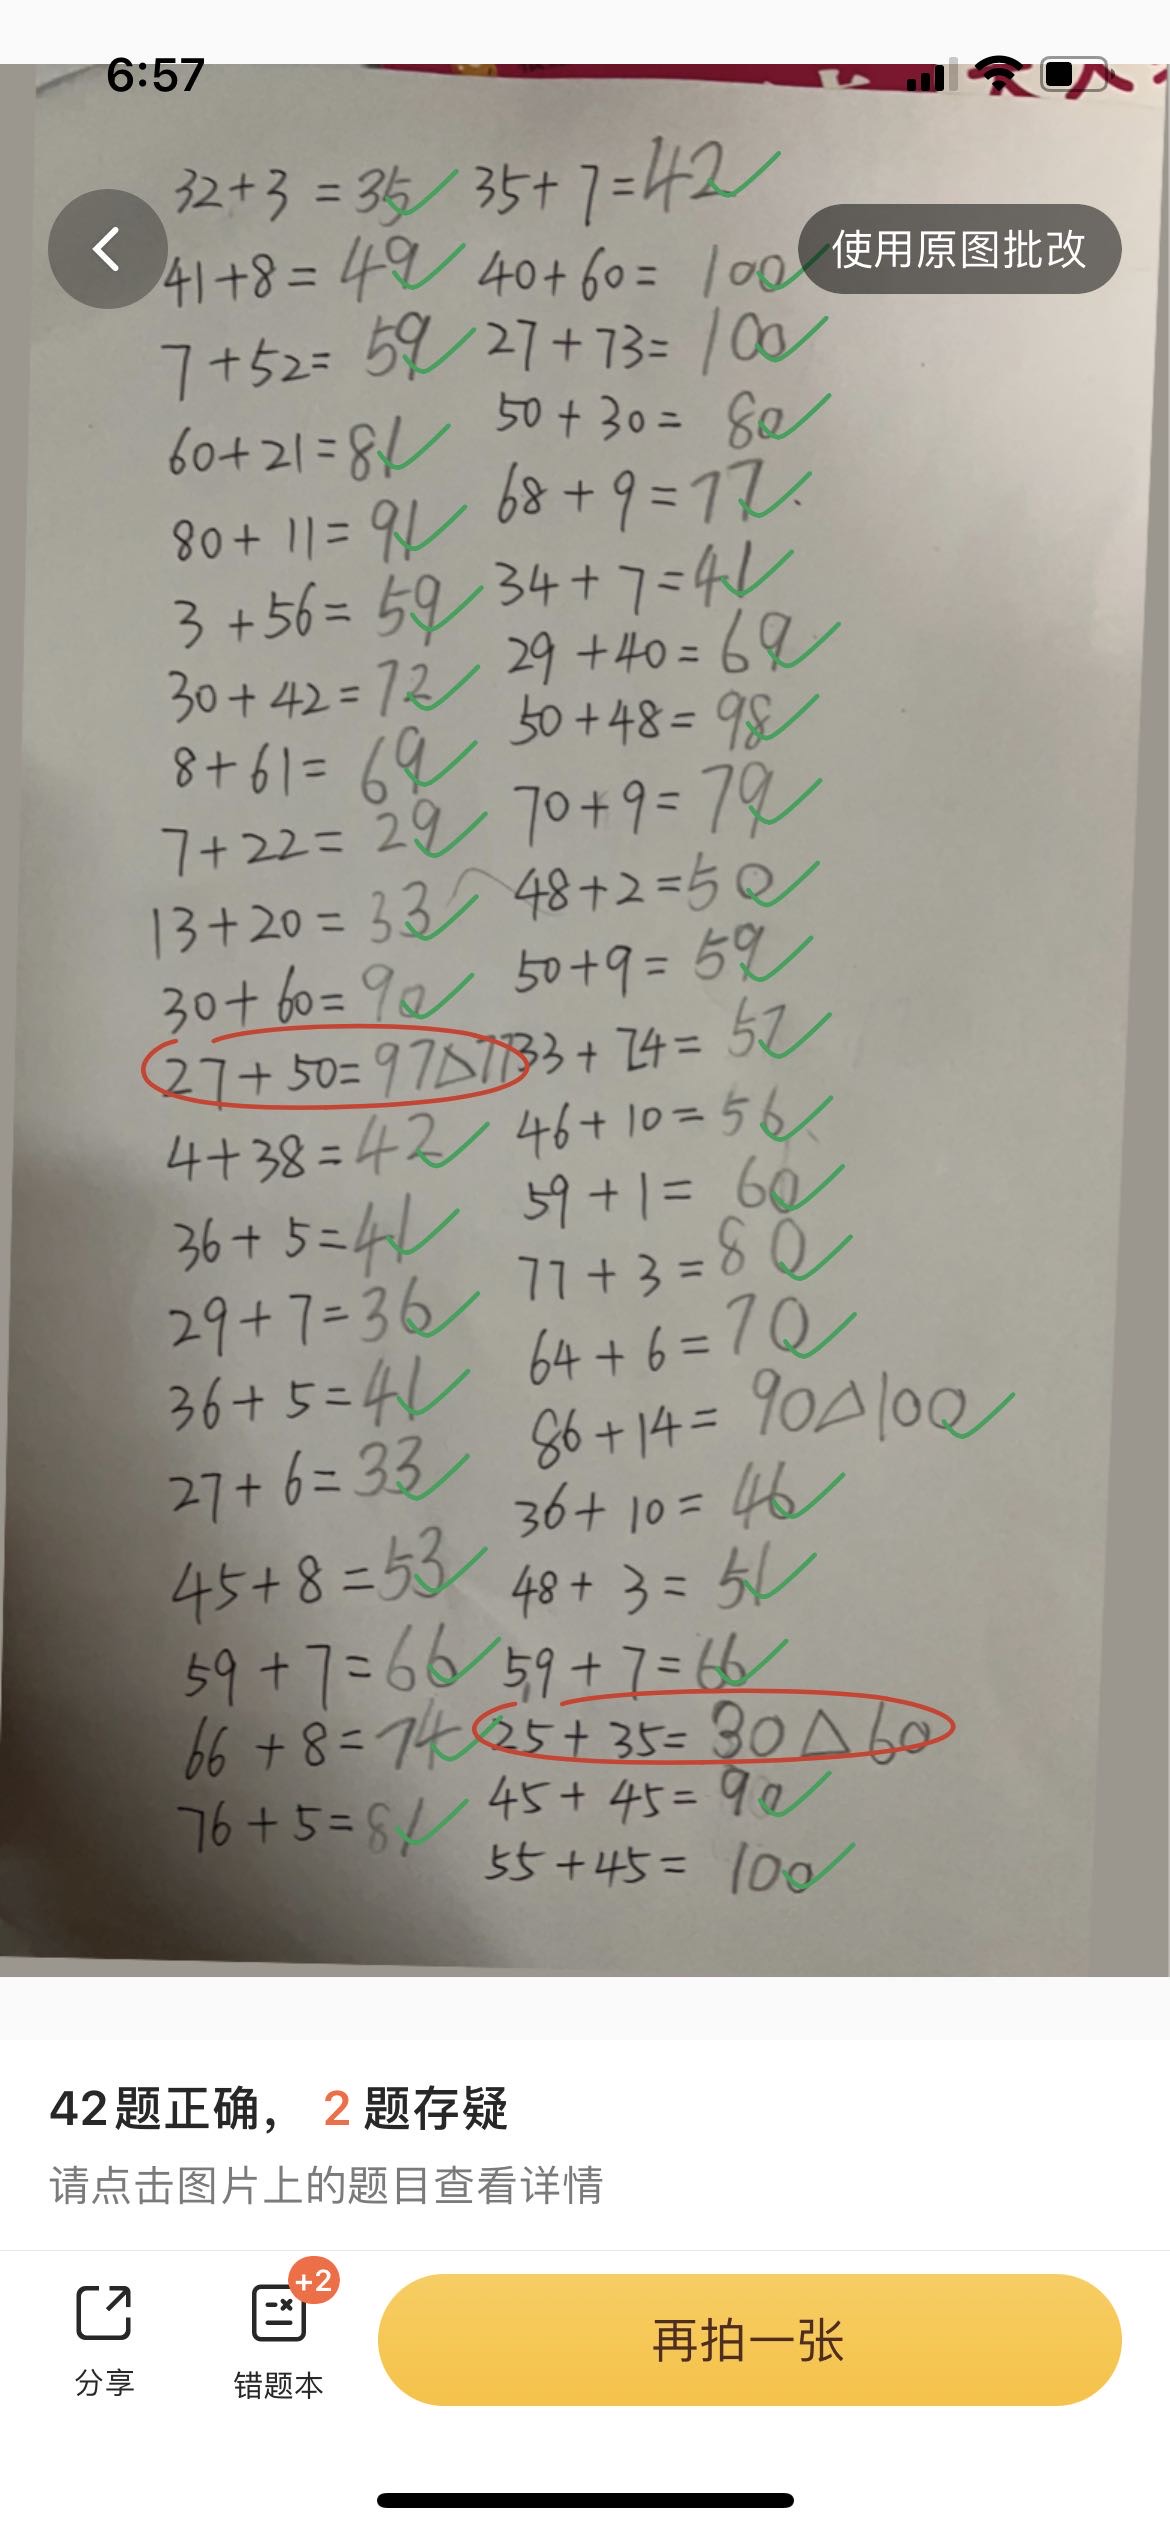 6:57
使用原图批改
32+3=35 35+7=42
41+8=49 40+60=100
7+52=59 27+73=100
60+21=81 50+30=80
80+11=91 68+9=77
3+56=59 34+7=41
30+42=72 29+40=69
8+61=69 50+48=98
7+22=29 70+9=79
13+20=33 48+2=50
30+60=90 50+9=59
27+50=97△77 33+24=57
4+38=42 46+10=56
36+5=41 59+1=60
29+7=36 77+3=80
36+5=41 64+6=70
27+6=33 86+14=90△100
45+8=53 36+10=46
59+7=66 48+3=51
66+8=74 59+7=66
76+5=81 25+35=30△60
45+45=90
55+45=100
42题正确， 2 题存疑
请点击图片上的题目查看详情
+2
分享 错题本 再拍一张